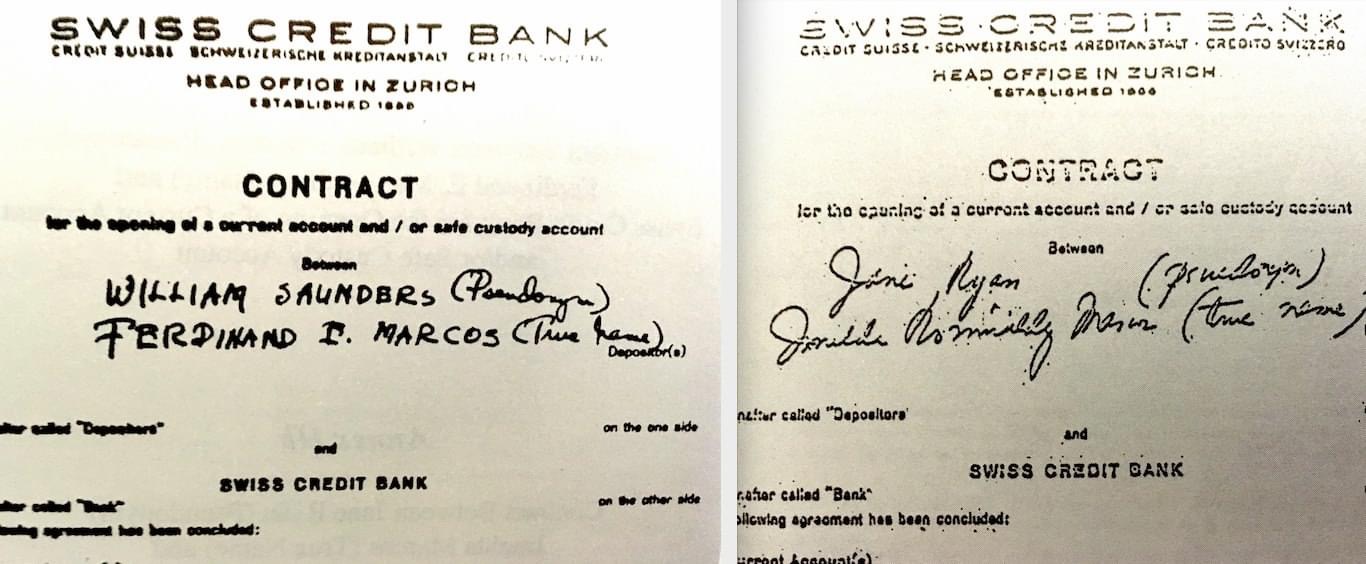 SWISS CREDIT BANK
CREDIT SUISSE SCHWEIZERISCHE KREDITANSTALT CREDITO SVIZZERO
HEAD OFFICE IN ZURICH
ESTABLISHED 1856
CONTRACT
for the opening of a current account and / or safe custody account
Between
WILLIAM SAUNDERS (Pseudonym)
FERDINAND E. MARCOS (True Name)
Depositor(s)
after called "Depositors"
on the one side
and
SWISS CREDIT BANK
after called "Bank"
on the other side
owing agreement has been concluded:
SWISS · CREDIT BANK
CREDIT SUISSE · SCHWEIZERISCHE KREDITANSTALT · CREDITO SVIZZERO
HEAD OFFICE IN ZURICH
ESTABLISHED 1856
CONTRACT
for the opening of a current account and / or safe custody account
Between
Jane Ryan (pseudonym)
Imelda Romualdez Marcos (true name)
after called "Depositors'
and
SWISS CREDIT BANK
after called "Bank"
ollowing agreement has been concluded:
urrent Account(s)